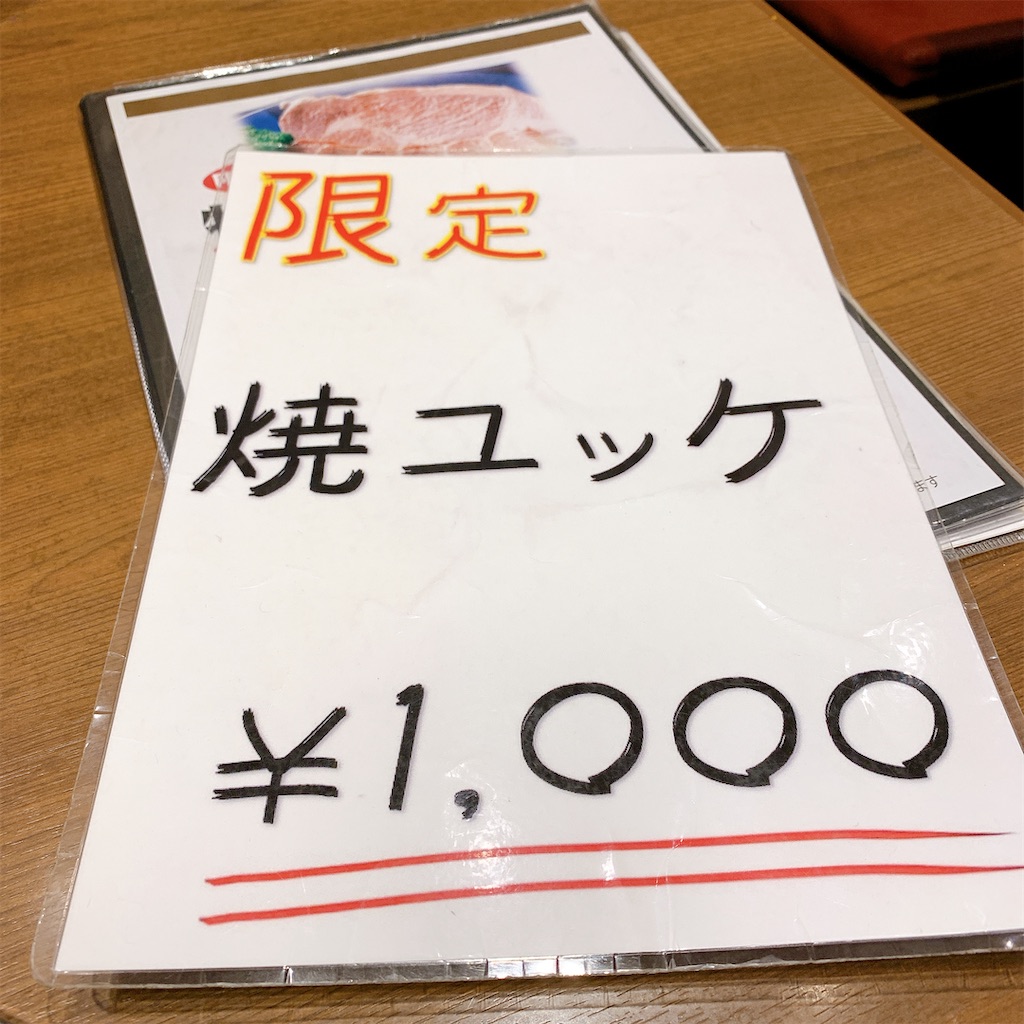 限定
焼ユッケ
¥1,000